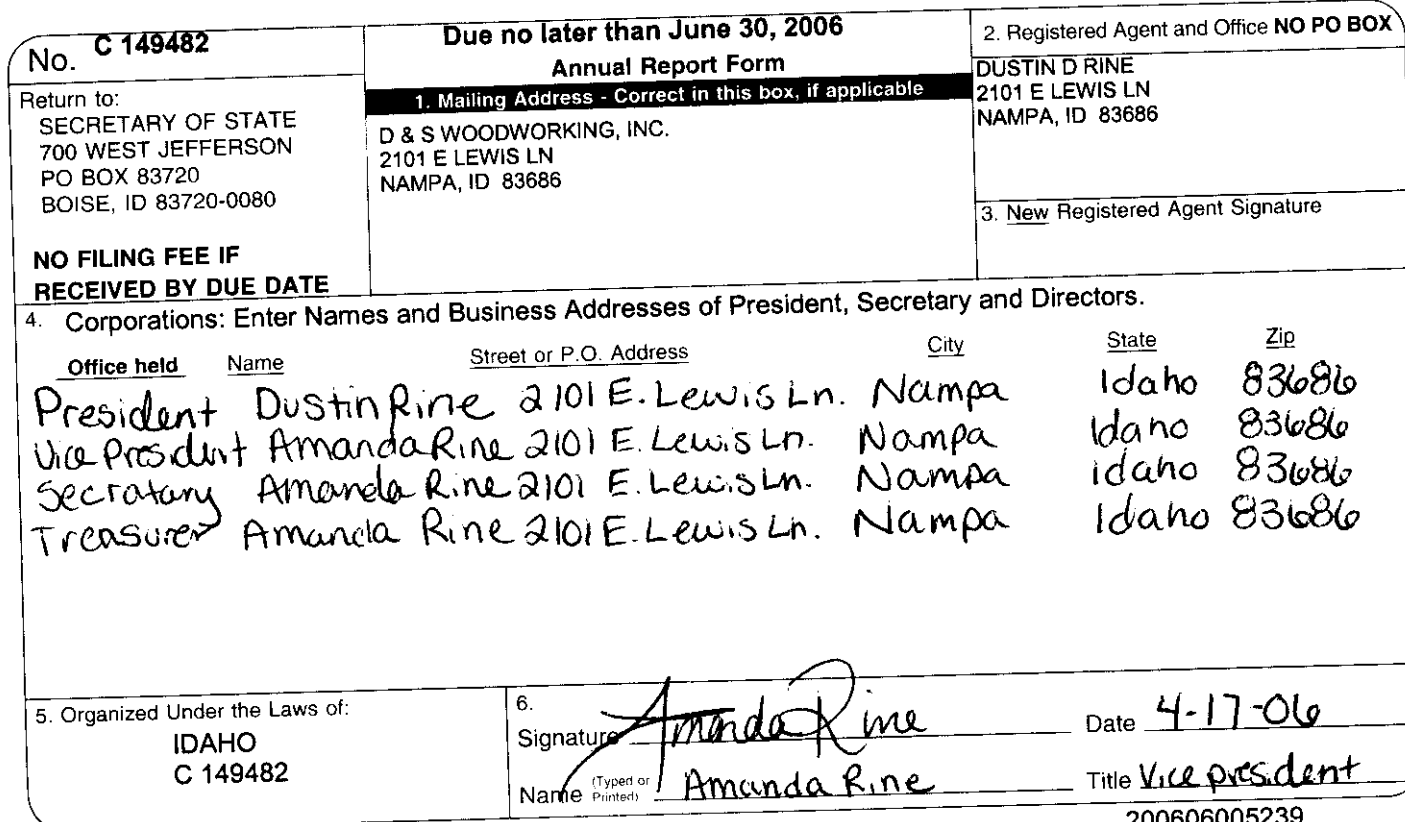 No. C 149482
Return to:
SECRETARY OF STATE
700 WEST JEFFERSON
PO BOX 83720
BOISE, ID 83720-0080
NO FILING FEE IF
RECEIVED BY DUE DATE
Due no later than June 30, 2006
Annual Report Form
1. Mailing Address - Correct in this box, if applicable
D & S WOODWORKING, INC.
2101 E LEWIS LN
NAMPA, ID 83686
2. Registered Agent and Office NO PO BOX
DUSTIN D RINE
2101 E LEWIS LN
NAMPA, ID 83686
3. New Registered Agent Signature
4. Corporations: Enter Names and Business Addresses of President, Secretary and Directors.
Office held Name Street or P.O. Address City State Zip
President Dustin Rine 2101 E. Lewis Ln. Nampa Idaho 83686
Vice President Amanda Rine 2101 E. Lewis Ln. Nampa Idaho 83686
Secratary Amanda Rine 2101 E. Lewis Ln. Nampa idaho 83686
Treasurer Amanda Rine 2101 E. Lewis Ln. Nampa Idaho 83686
5. Organized Under the Laws of:
IDAHO
C 149482
6.
Signature Amanda Rine Date 4-17-06
Name (Typed or Printed) Amanda Rine Title Vice president
200606005239